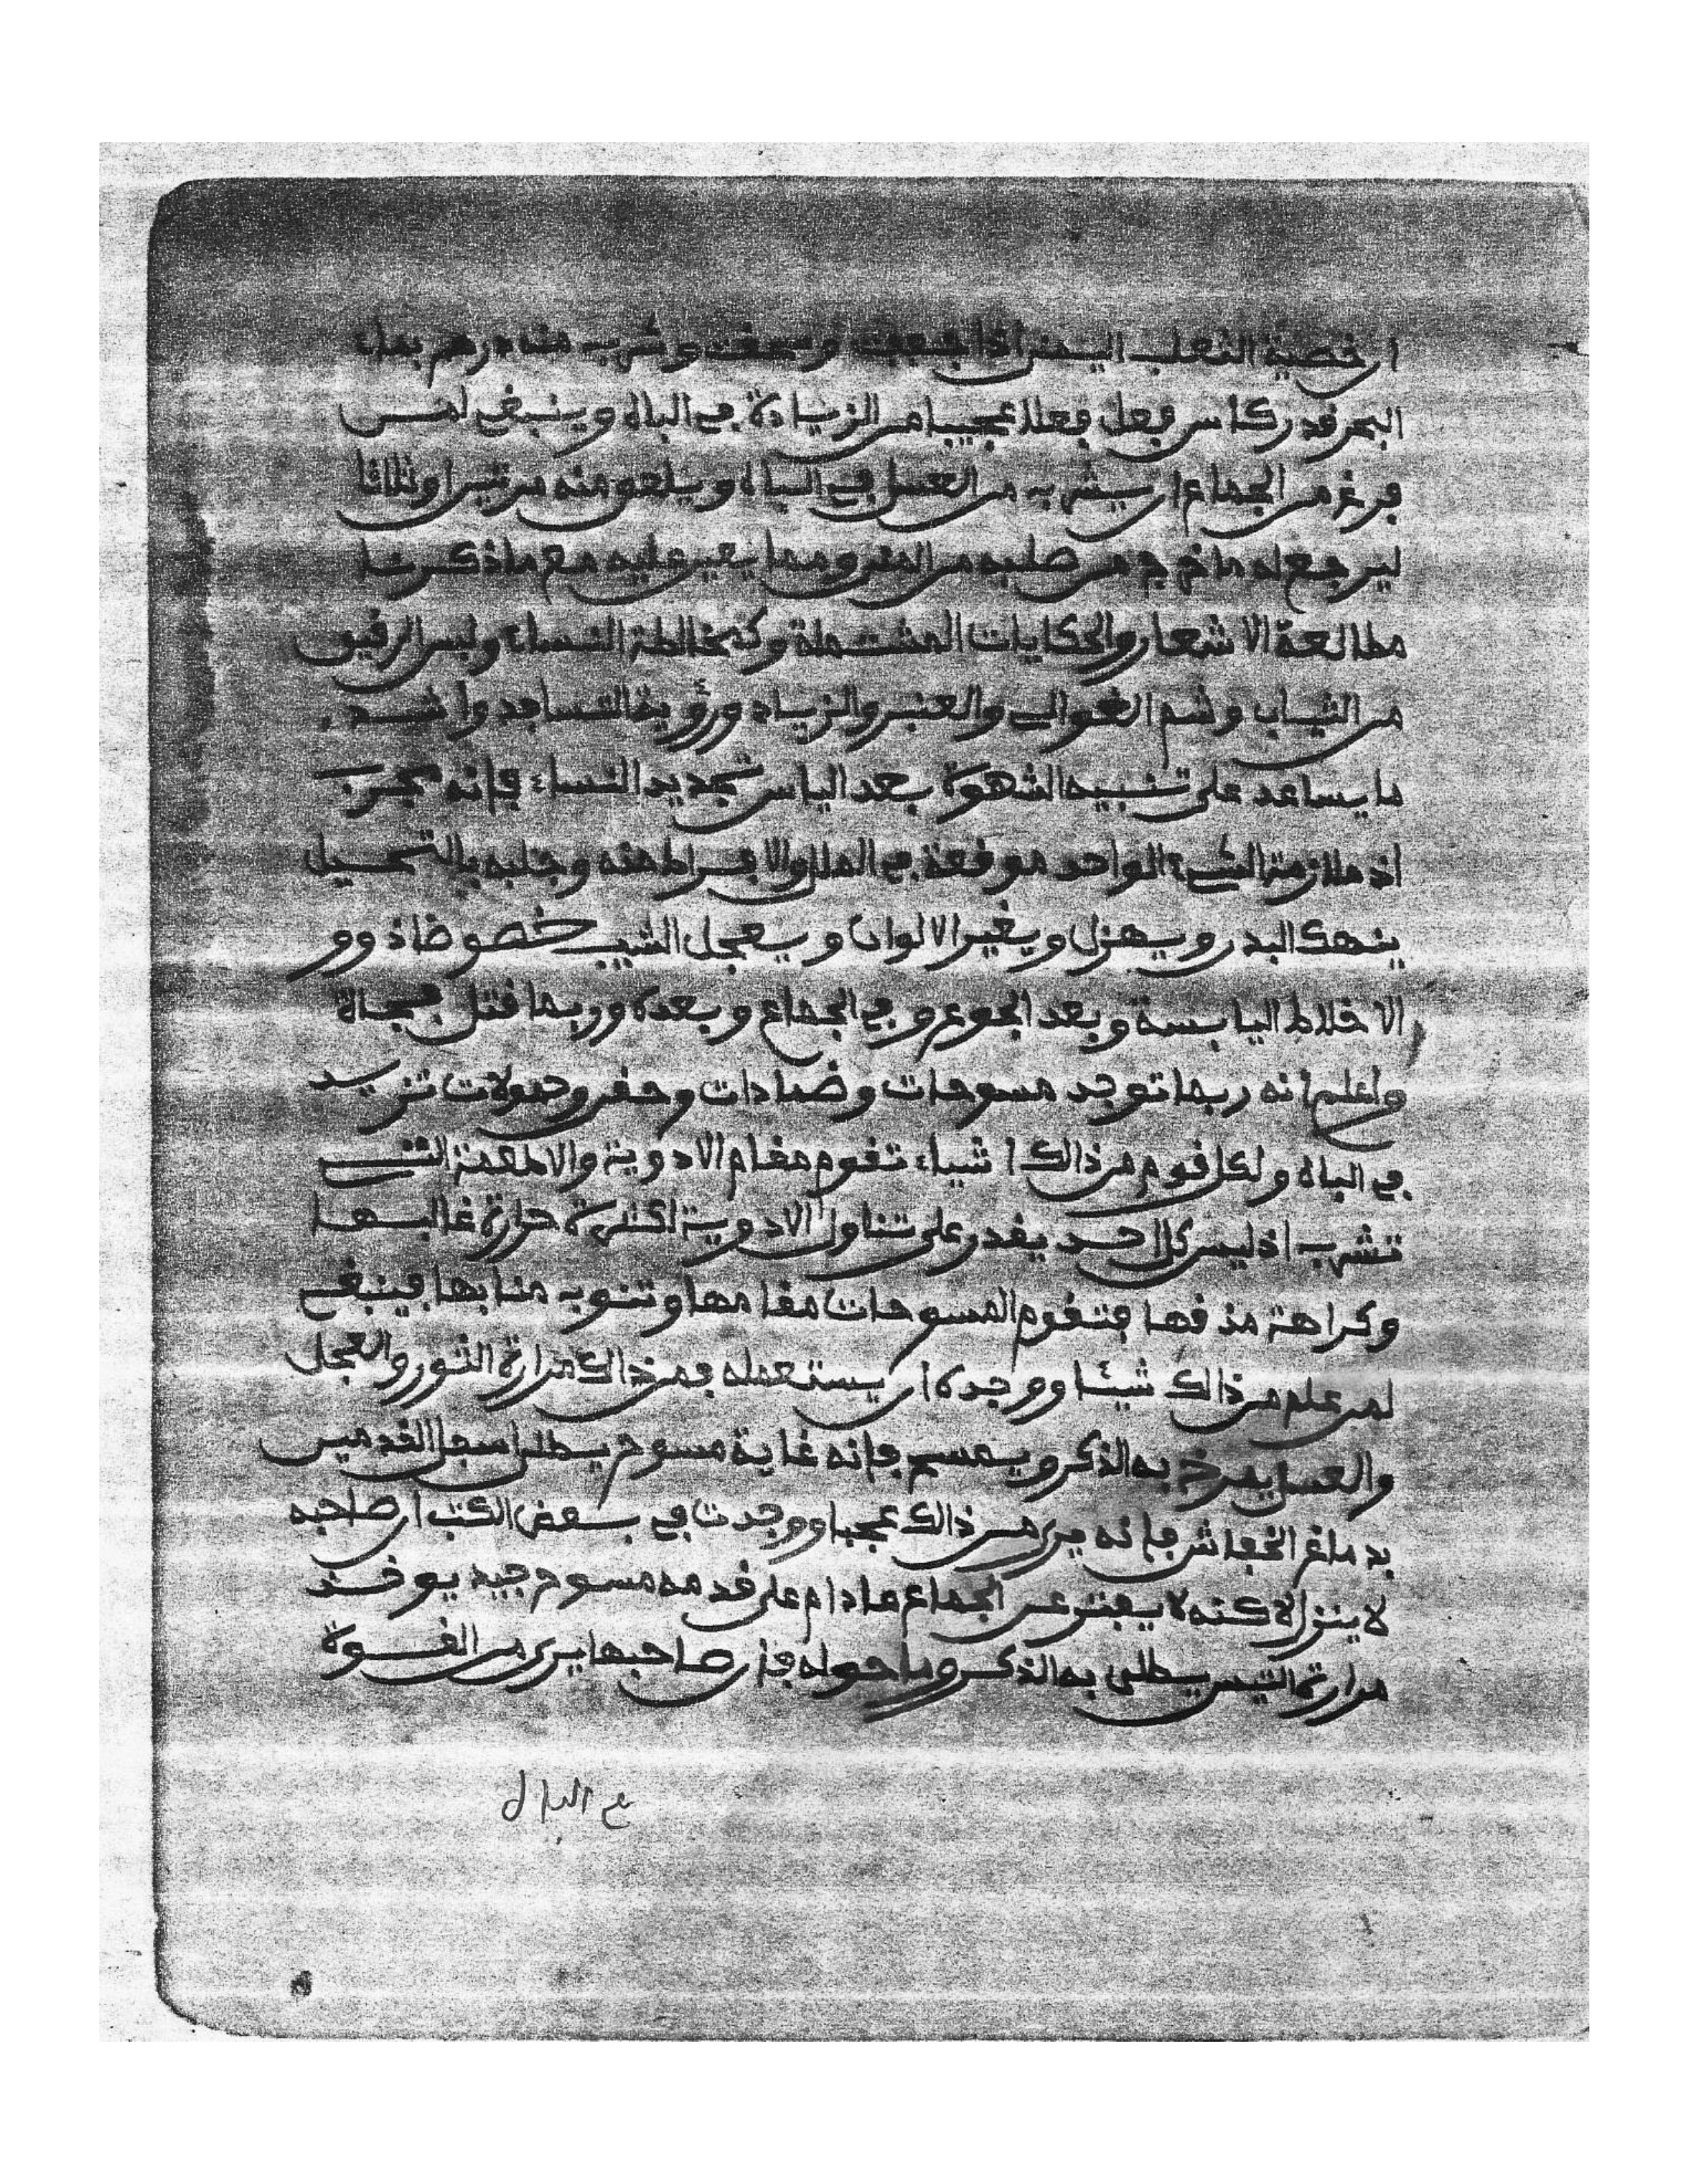 ان خصية الثعلب اليمنى اذا جففت وسحقت وشرب منه درهم بماء
البحر قدر كاس فعل فعلا عجيبا من الزيادة في الباه وينبغي لمن
فرغ من الجماع ان يشرب من العسل في الباه ويلعق منه مرتين او ثلاثا
ليرجع له ما خرج من صلبه من المني ومما يعين عليه مع ماذكرنا
مطالعة الاشعار والحكايات المشتملة وكذ مخالطة النساء ولبس الرقيق
من الثياب وشم الغوالي والعنبر والزباد ورؤية التساجد واشد
ما يساعد على تنبيه الشهوة بعد الياس تجديد النساء فإنه مجرب
اذ ملازمة الشيء الواحد موقعة في الملل والافراط منه وجلبه بالتحميل
ينهك البدن ويهزل ويغير الالوان ويعجل الشيب خصوضا ذوو
الاخلاط اليابسة وبعد الجوع وفي الجماع وبعده وربما قتل فجاة
واعلم انه ربما توجد مسوحات وضمادات وحقن وحمولات تزيد
في الباه ولكل قوم من ذالك اشياء تقوم مقام الادوية والاطعمة التي
تشرب اذ ليس كل احد يقدر على تناول الادوية اكثرة حرارة غالبها
وكراهة مذقها فتقوم المسوحات مقامها وتنوب منابها فينبغي
لمن علم من ذالك شيئا ووجده ان يستعمله فمن ذالك مرارة الثور والعجل
والعسل يمرخ به الذكر ويمسح فإنه غاية مسوح يطلى اسفل القدمين
بدماغ الخفاش فإنه يرى من ذالك عجبا ووجدت في بعض الكتب ان صاحبه
لا ينزل لاكنه لا يفتر عن الجماع مادام على قدمه مسوح جيد يوخذ
مرارة التيس يطلى به الذكر وما حوله فإن صاحبها يرى من القوة
في الباه